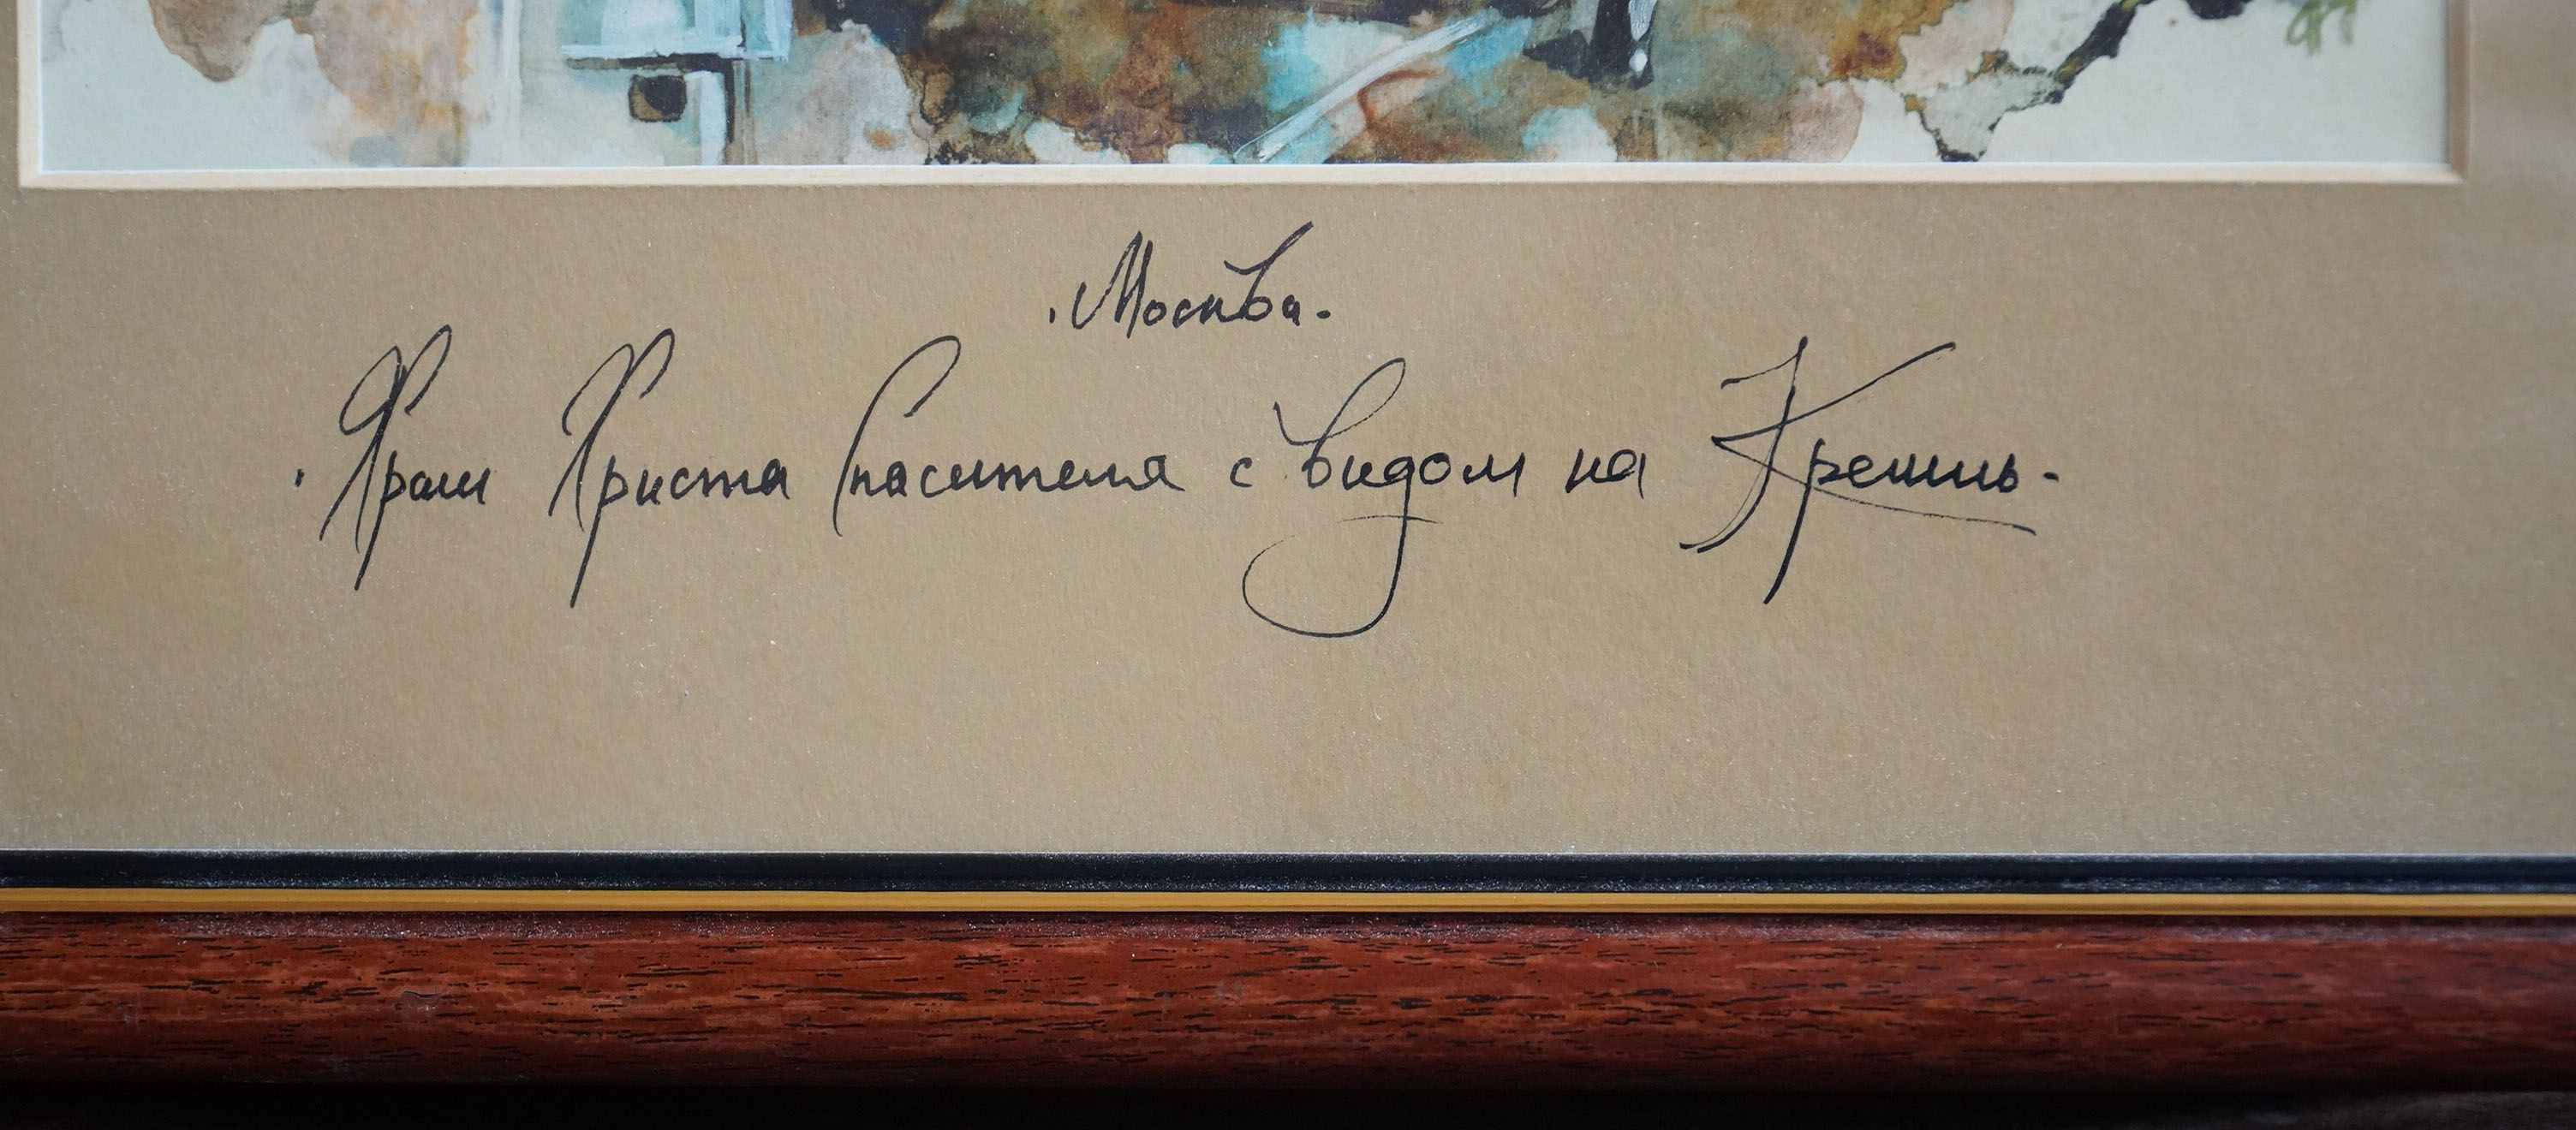 ·Москва·
·Храм Христа Спасителя с видом на Кремль·